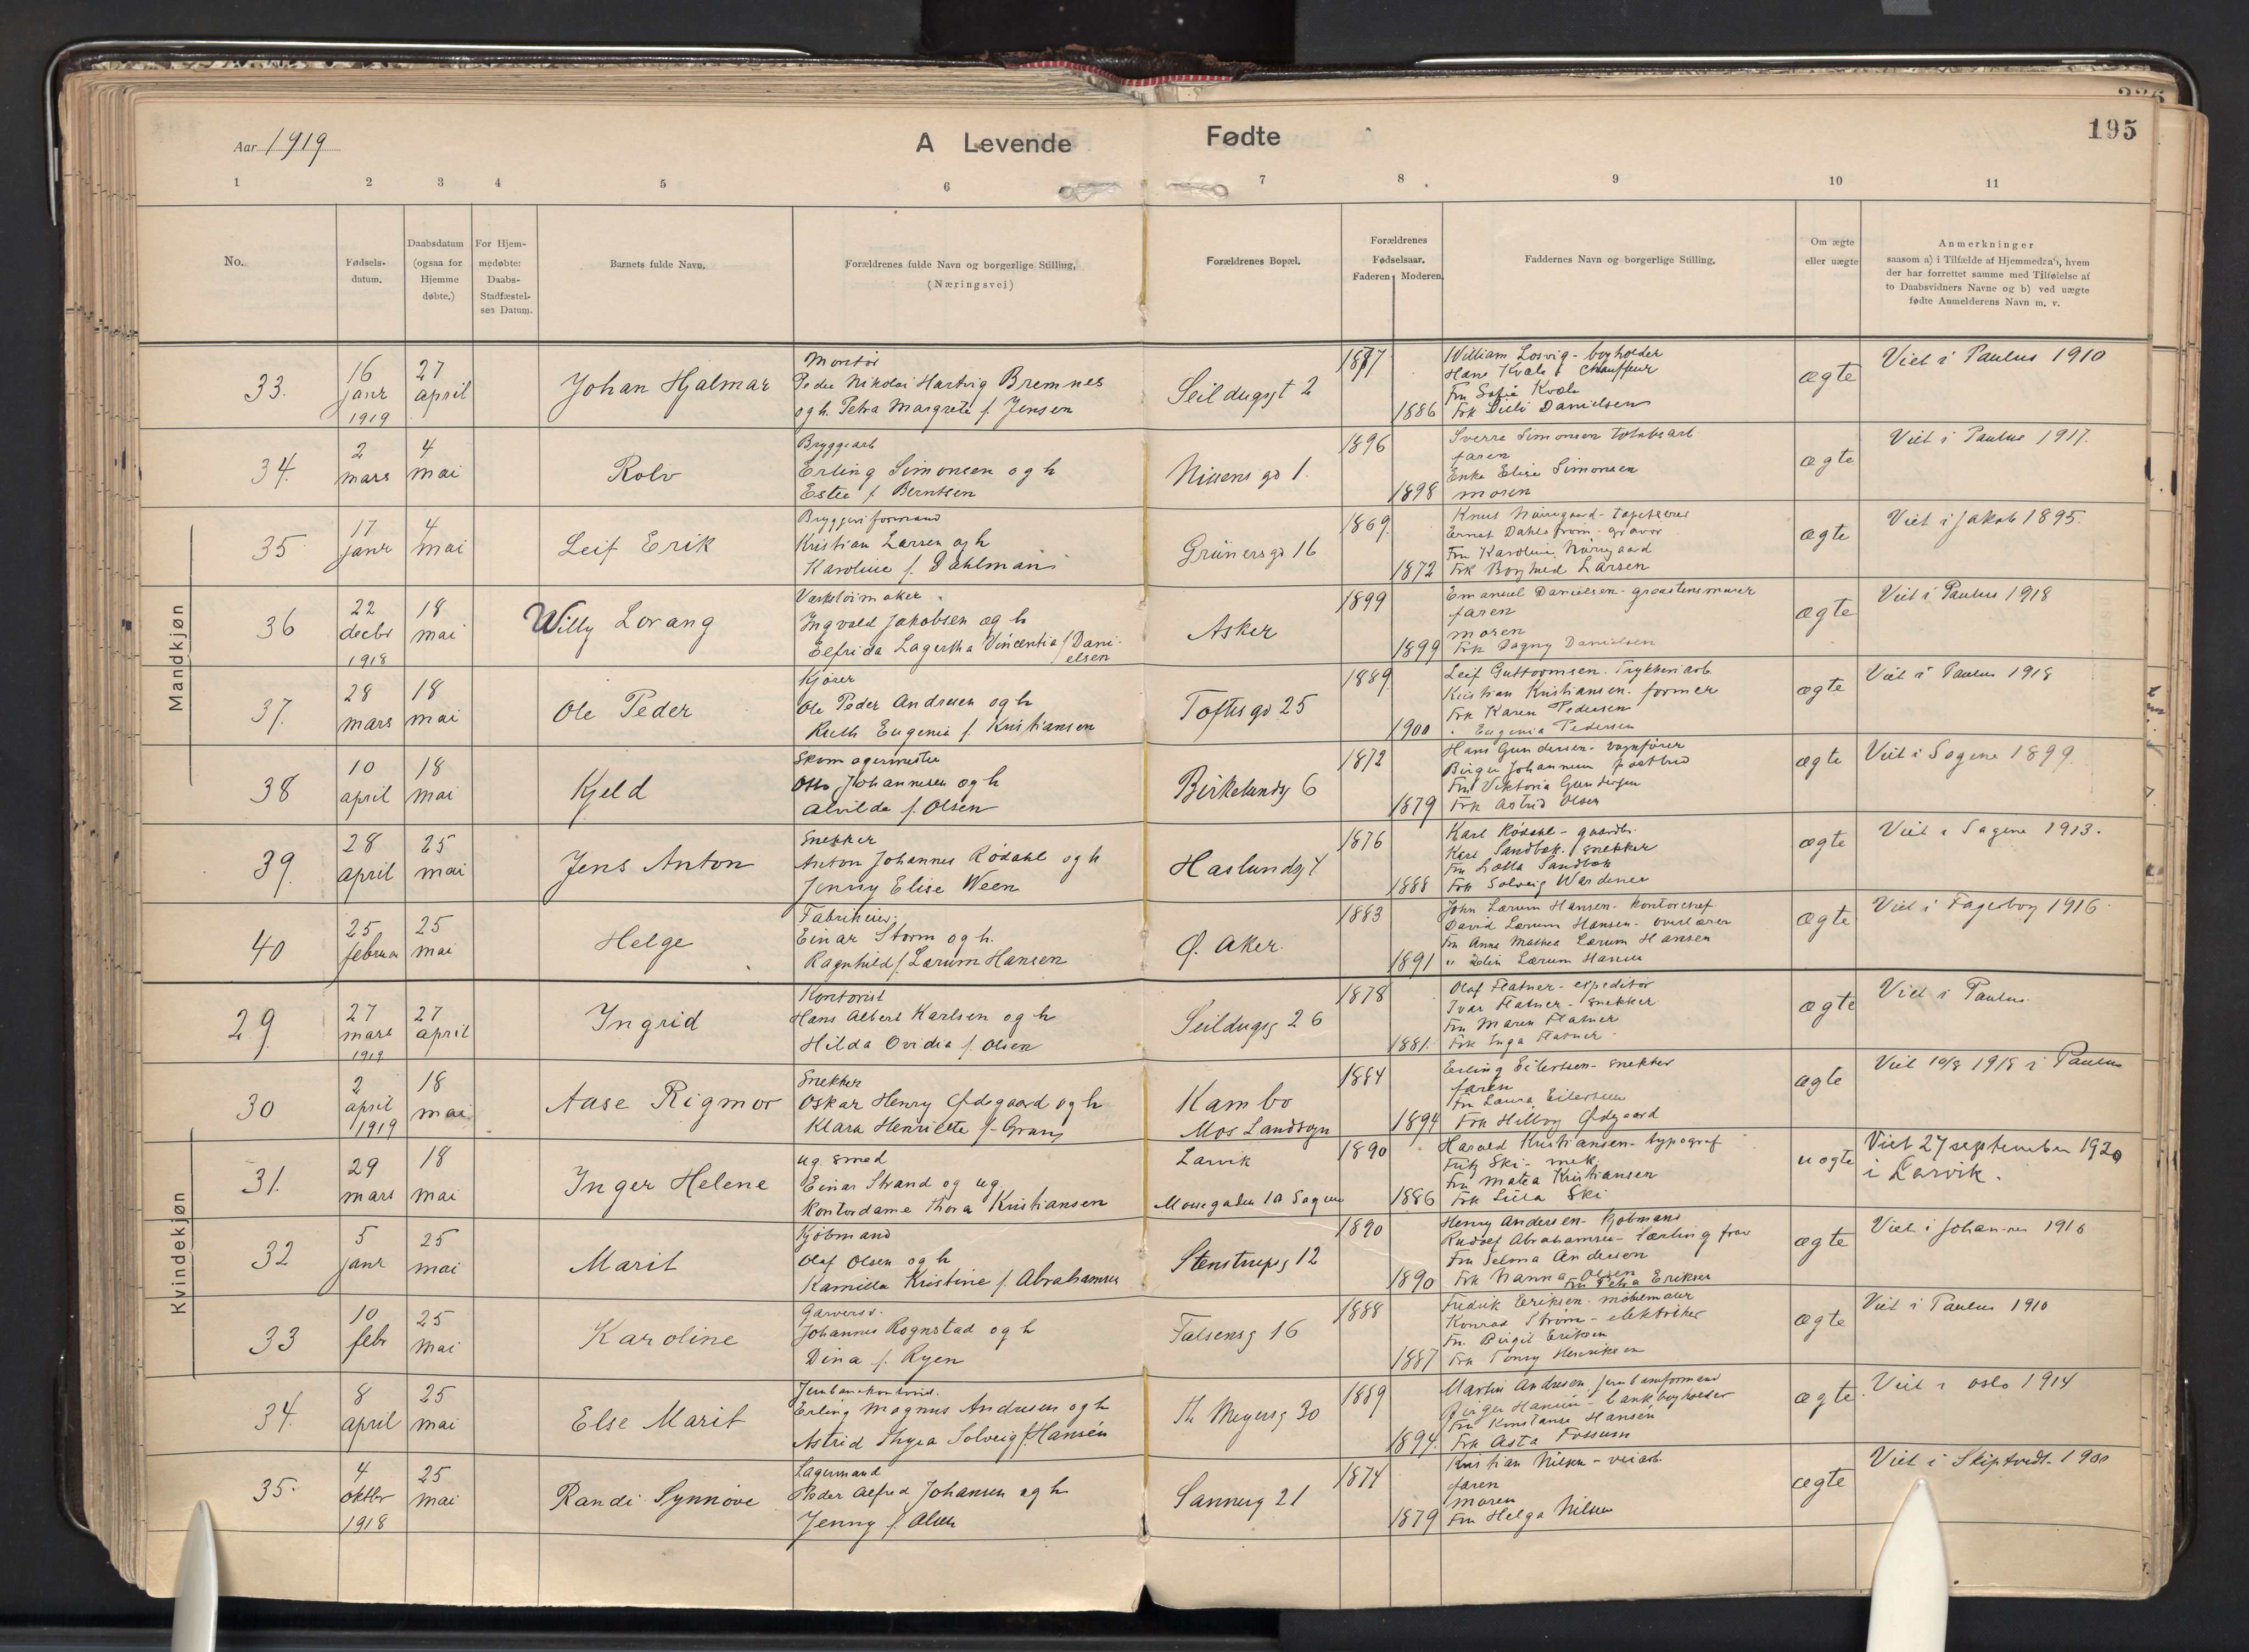 226
195
Aar 1919
A Levende Fødte
1 2 3 4 5 6 7 8 9 10 11
No.
Fødsels-
datum.
Daabsdatum
(ogsaa for
Hjemme
døbte.)
For Hjem-
medøbte:
Daabs-
Stadfæstel-
ses Datum.
Barnets fulde Navn.
Forældrenes fulde Navn og borgerlige Stilling.
(Næringsvej)
Forældrenes Bopæl.
Forældrenes
Fødselsaar.
Faderen Moderen
Faddernes Navn og borgerlige Stilling.
Om ægte
eller uægte
Anmerkninger
saasom a) i Tilfælde af Hjemmedaab, hvem
der har forrettet samme med Tilføielse af
to Daabsvidners Navne og b) ved uægte
fødte Anmelderens Navn m. v.
Mandkjøn
33.
16
janr
1919
27
april
Johan Hjalmar
Montør
Peder Nikolai Hartvig Bremnes
og h. Petra Margrete f. Jensen
Seildugsgt 2
1877
1886
William Losvig - bogholder
Hans Kvale - Chauffeur
Fru Sofie Kvale
Frk Lilli Danielsen
ægte
Viet i Paulus 1910
34.
2
mars
4
mai
Rolv
Bryggearb
Erling Simonsen og h
Ester f. Berntsen
Nissens gd 1.
1896
1898
Sverre Simonsen tobaksarb
faren
Enke Elise Simonsen
moren
ægte
Viet i Paulus 1917.
35
17
janr
4
mai
Leif Erik
Bryggeriformand
Kristian Larsen og h
Karoline f. Dahlman
Grünersgd 16
1869
1872
Knut Nørregaard - tapetserer
Ernst Dahlstrøm - gravør
Fru Karoline Nørregaard
Frk Borghild Larsen
ægte
Viet i Jakob 1895.
36
22
decbr
1918
18
mai
Willy Lorang
Værktøimaker
Ingvald Jakobsen og h
Elfrida Lagertha Vincentia f. Dani-
elsen
Asker
1899
1899
Emanuel Danielsen - graastensmurer
faren
moren
Frk Dagny Danielsen
ægte
Viet i Paulus 1918
37.
28
mars
18
mai
Ole Peder
Kjører
Ole Peder Andresen og h
Ruth Eugenie f. Kristiansen
Toftesgd 25
1889
1900
Leif Guttormsen. Trykkeriarb
Kristian Kristiansen. former
Frk Karen Pedersen
" Eugenia Pedersen
ægte
Viet i Paulus 1918
38
10
april
18
mai
Kjeld
Skomagermester
Otto Johannesen og h
Alvilde f. Olsen
Birkelundsg 6
1872
1879
Hans Gundersen - vognfører
Birger Johannesen postbud
Fru Viktoria Gundersen
Frk Astrid Olsen
ægte
Viet i Sagene 1899.
39.
28
april
25
mai
Jens Anton
Snekker
Anton Johannes Rødahl og h
Jenny Elise Ween
Haslundsg 4
1876
1888
Karl Rødahl - gaardbr.
Karl Sandbæk. snekker
Fru Lotta Sandbæk
Frk Solveig Wardenær
ægte
Viet i Sagene 1913.
40
25
februar
25
mai
Helge
Fabrikeier.
Einar Storm og h.
Ragnhild f. Lærum Hansen
Ø. Aker.
1883
1891
John Lærum Hansen - kontorchef
David Lærum Hansen - overlærer
Fru Anna Mathea Lærum Hansen
" Lærum Hansen
ægte
Viet i Fagerborg 1916.
Kvindekjøn
29
27
mars
1919
27
april
Ingrid
Kontorist
Hans Albert Karlsen og h
Hilda Ovidia f. Olsen
Seildugsg 26
1878
1881.
Olaf Flatner - expeditør
Ivar Flatner - snekker
Fru Maren Flatner
Frk Inga Flatner
ægte
Viet i Paulus.
30
2
april
1919
18
mai
Aase Rigmor
Snekker
Oskar Henry Ødegaard og h
Klara Henriette f. Gran
Kambo
Mos Landsogn
1884
1894
Erling Eilertsen - snekker
faren
Fru Laura Eilertsen
Frk Hilborg Ødegaard
ægte
Viet 10/8 1918 i Paulus
31.
29
mars
18
mai
Inger Helene
ug. smed
Einar Strand og ug.
kontordame Thora Kristiansen
Larvik
Mossegaden 1a Sagene
1890
1886
Harald Kristiansen - typograf
Fritz Ski - mek.
Fru Matea Kristiansen
Frk Lilla Ski
uægte
Viet 27 september 1920
i Larvik.
32
5
janr
25
mai
Marit
Kjøbmand
Olaf Olsen og h
Kamilla Kristine f. Abrahamsen
Stenstrupsg 12
1890
1890
Henry Andersen - kjøbmand
Rudolf Abrahamsen - lærling
Fru Selma Andersen
Frk Nanna Olsen
Fru Petra Eriksen
ægte
Viet i Johannes 1916
33
10
febr
25
mai
Karoline
Garversv.
Johannes Rognstad og h
Dina f. Ryen
Falsensg 16
1888
1887
Fredrik Eriksen - møbelmaler
Konrad Strøm - elektriker
Fru Birgit Eriksen
Frk Tonny Henriksen
ægte
Viet i Paulus 1910
34.
8
april
25
mai
Else Marit
Jernbanekontorist.
Erling Magnus Andresen og h
Astrid Thyra Solveig f. Hansén
Th Meyersg 30
1889
1894.
Martin Andresen jernbaneformand
Birger Hansén - bankbogholder
Fru Konstanse Hansén
Frk Asta Fossum
ægte
Viet i Oslo 1914
35.
4
oktbr
1918
25
mai
Randi Synnøve
Lagermand
Peder Alfred Johansen og h
Jenny f. Olsen
Sannerg 21
1874
1879
Kristian Nilsen - veiarb.
faren
moren
Fru Helga Nilsen
ægte
Viet i Skiptvedt 1900